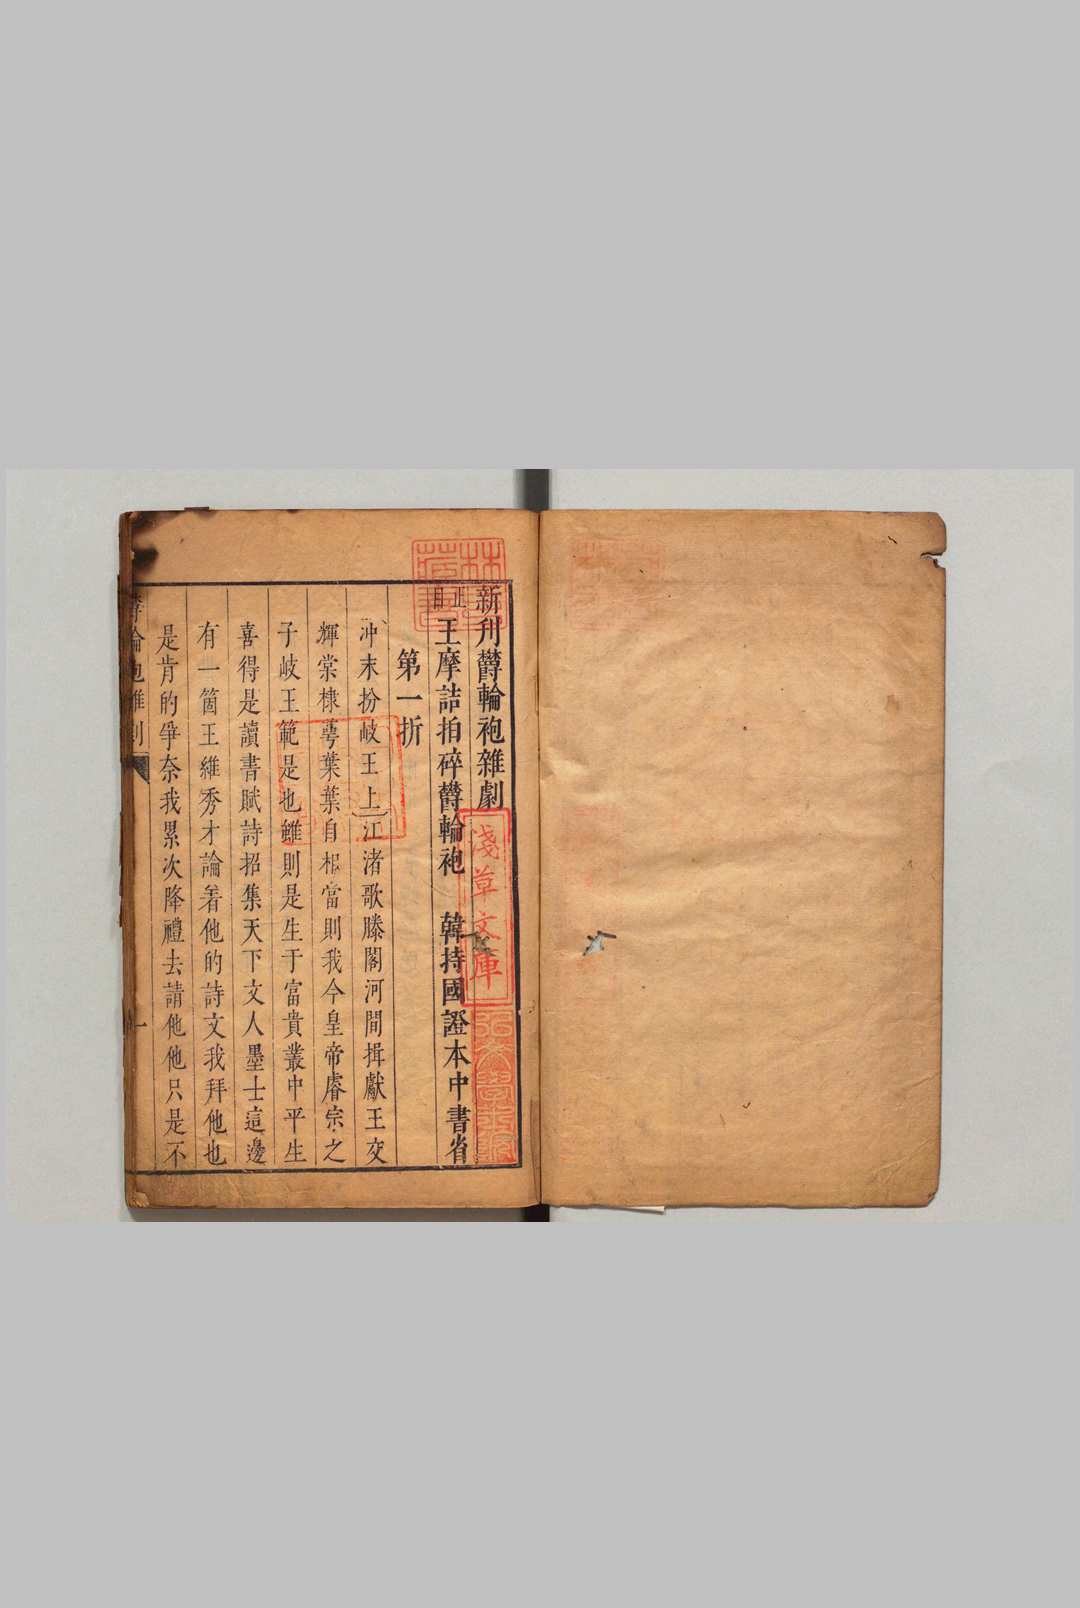 新刊欝輪袍雜劇
正目 王摩詰拍碎欝輪袍　韓持國證本中書省
第一折
沖末扮岐王上江渚歌滕閣河間揖獻王交
輝棠棣萼葉葉自相當則我今皇帝睿宗之
子岐王範是也雖則是生于富貴叢中平生
喜得是讀書賦詩招集天下文人墨士這邊
有一箇王維秀才論着他的詩文我拜他也
是肯的爭奈我累次降禮去請他他只是不
輪袍雜劇
一
淺草文庫
林氏藏書